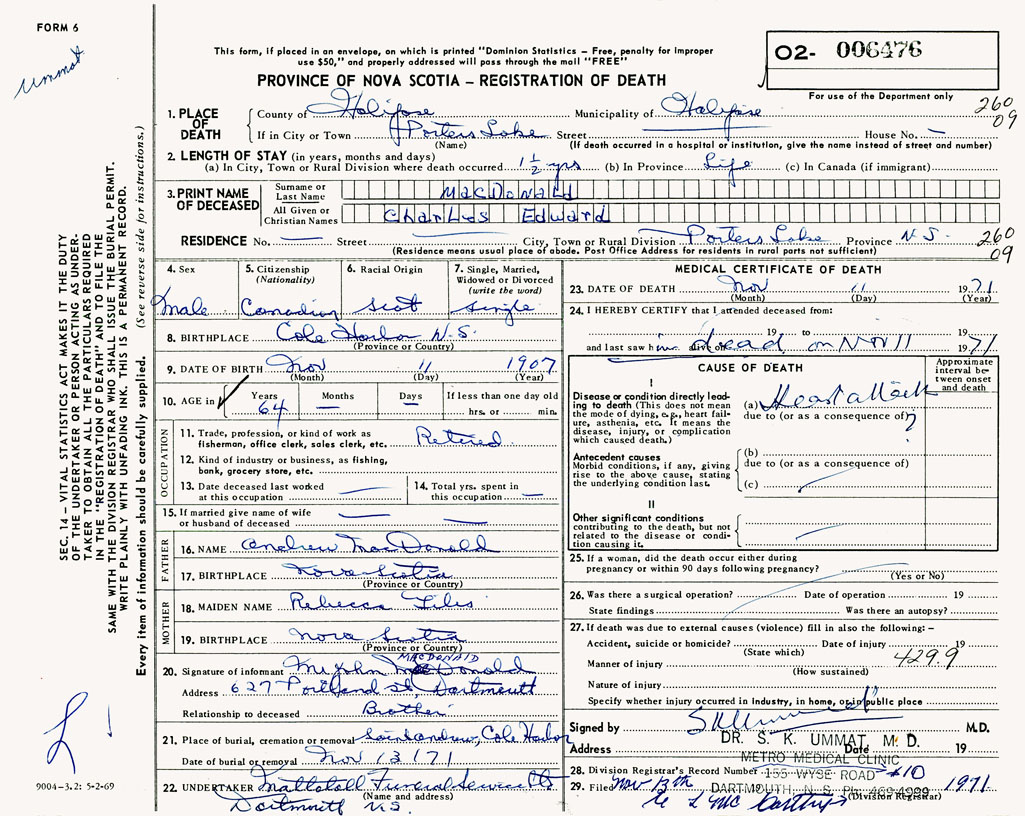 FORM 6
Ummat
This form, if placed in an envelope, on which is printed "Dominion Statistics – Free, penalty for improper
use $50," and properly addressed will pass through the mail "FREE"
PROVINCE OF NOVA SCOTIA – REGISTRATION OF DEATH
02- 006476
For use of the Department only
260
09
1. PLACE OF DEATH
County of Halifax Municipality of Halifax
If in City or Town Porters Lake Street House No. —
(Name) (If death occurred in a hospital or institution, give the name instead of street and number)
2. LENGTH OF STAY (in years, months and days)
(a) In City, Town or Rural Division where death occurred 1½ yrs (b) In Province Life (c) In Canada (if immigrant)
3. PRINT NAME OF DECEASED
Surname or Last Name MacDonald
All Given or Christian Names Charles Edward
RESIDENCE No. — Street — City, Town or Rural Division Porters Lake Province N.S.
260
09
(Residence means usual place of abode. Post Office Address for residents in rural parts not sufficient)
4. Sex
Male
5. Citizenship
(Nationality)
Canadian
6. Racial Origin
Scot
7. Single, Married,
Widowed or Divorced
(write the word)
Single
8. BIRTHPLACE Cole Harbor N.S.
(Province or Country)
9. DATE OF BIRTH Nov 11 1907
(Month) (Day) (Year)
10. AGE in
Years Months Days If less than one day old
64 — — hrs. or min.
OCCUPATION
11. Trade, profession, or kind of work as
fisherman, office clerk, sales clerk, etc. Retired
12. Kind of industry or business, as fishing,
bank, grocery store, etc.
13. Date deceased last worked
at this occupation —
14. Total yrs. spent in
this occupation —
15. If married give name of wife
or husband of deceased —
FATHER
16. NAME Andrew MacDonald
17. BIRTHPLACE Nova Scotia
(Province or Country)
MOTHER
18. MAIDEN NAME Rebecca
19. BIRTHPLACE Nova Scotia
(Province or Country)
MACDONALD
20. Signature of informant MacDonald
Address 627 Portland St, Dartmouth
Relationship to deceased Brother
21. Place of burial, cremation or removal Saint Andrew, Cole Harbor
Date of burial or removal Nov 13/71
22. UNDERTAKER Mattatall Funeral
(Name and address)
Dartmouth N.S.
MEDICAL CERTIFICATE OF DEATH
23. DATE OF DEATH Nov 11 1971
(Month) (Day) (Year)
24. I HEREBY CERTIFY that I attended deceased from:
19 to 19
and last saw him alive on dead on Nov 11 1971
CAUSE OF DEATH
Approximate
interval be-
tween onset
and death
I
Disease or condition directly lead-
ing to death (This does not mean
the mode of dying, e.g., heart fail-
ure, asthenia, etc. It means the
disease, injury, or complication
which caused death.)
(a) Heart attack
due to (or as a consequence of)
?
Antecedent causes
Morbid conditions, if any, giving
rise to the above cause, stating
the underlying condition last.
(b)
due to (or as a consequence of)
(c)
II
Other significant conditions
contributing to the death, but not
related to the disease or condi-
tion causing it.
25. If a woman, did the death occur either during
pregnancy or within 90 days following pregnancy?
(Yes or No)
26. Was there a surgical operation? Date of operation 19
State findings Was there an autopsy?
27. If death was due to external causes (violence) fill in also the following:–
Accident, suicide or homicide? Date of injury 19
(State which)
4299
Manner of injury
(How sustained)
Nature of injury
Specify whether injury occurred in industry, in home, or in public place
Signed by SKUmmat M.D.
DR. S. K. UMMAT, M. D.
Address Date 19
METRO MEDICAL CLINIC
28. Division Registrar's Record Number #10
155 WYSE ROAD
29. Filed Nov 13th 1971
DARTMOUTH, N. S. Ph. 469-4929
(Division Registrar)
SEC. 14 – VITAL STATISTICS ACT MAKES IT THE DUTY
OF THE UNDERTAKER OR PERSON ACTING AS UNDER-
TAKER TO OBTAIN ALL THE PARTICULARS REQUIRED
IN THE "REGISTRATION OF DEATH" AND TO FILE THE
SAME WITH THE DIVISION REGISTRAR WHO SHALL ISSUE THE BURIAL PERMIT.
WRITE PLAINLY WITH UNFADING INK. THIS IS A PERMANENT RECORD.
Every item of information should be carefully supplied. (See reverse side for instructions.)
9004-3.2: 5-2-69